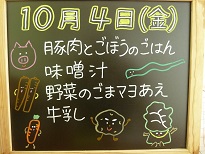 10月4日(金)
豚肉とごぼうのごはん
味噌汁
野菜のごまマヨあえ
牛乳